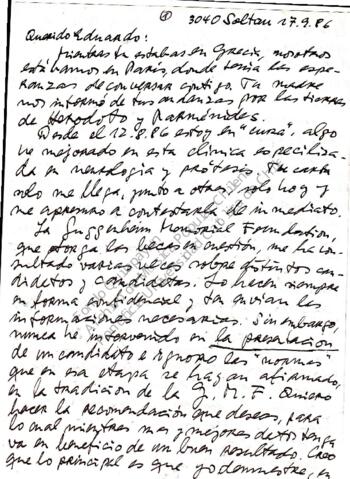 ①
3040 Soltau 17.9.86
Querido Eduardo:
Mientras tu estabas en Grecia, nosotros
estábamos en París, donde tenía las espe-
ranzas de conversar contigo. Tu madre
nos informó de tus andanzas por las tierras
de Herodoto y Parménides.
Desde el 12.8.86 estoy en "cura", algo
he mejorado en esta clínica especializa-
da en neurología y prótesis. Tu carta
solo me llega, junto a otras, solo hoy y
me apresuro a contestarte de inmediato.
La Guggenheim Memorial Foundation,
que otorga las becas en cuestión, me ha con-
sultado varias veces sobre distintos can-
didatos y candidatas. Lo hacen siempre
en forma confidencial y envían las
informaciones necesarias. Sin embargo,
nunca he intervenido en la presentación
de un candidato e ignoro las "normas"
que en esa etapa se hayan afirmado,
en la tradición de la G. M. F. Quiero
hacer la recomendación que deseas, para
lo cual mientras mas y mejores datos tenga
va en beneficio de un buen resultado. Creo
que lo principal es que yo demuestre, en